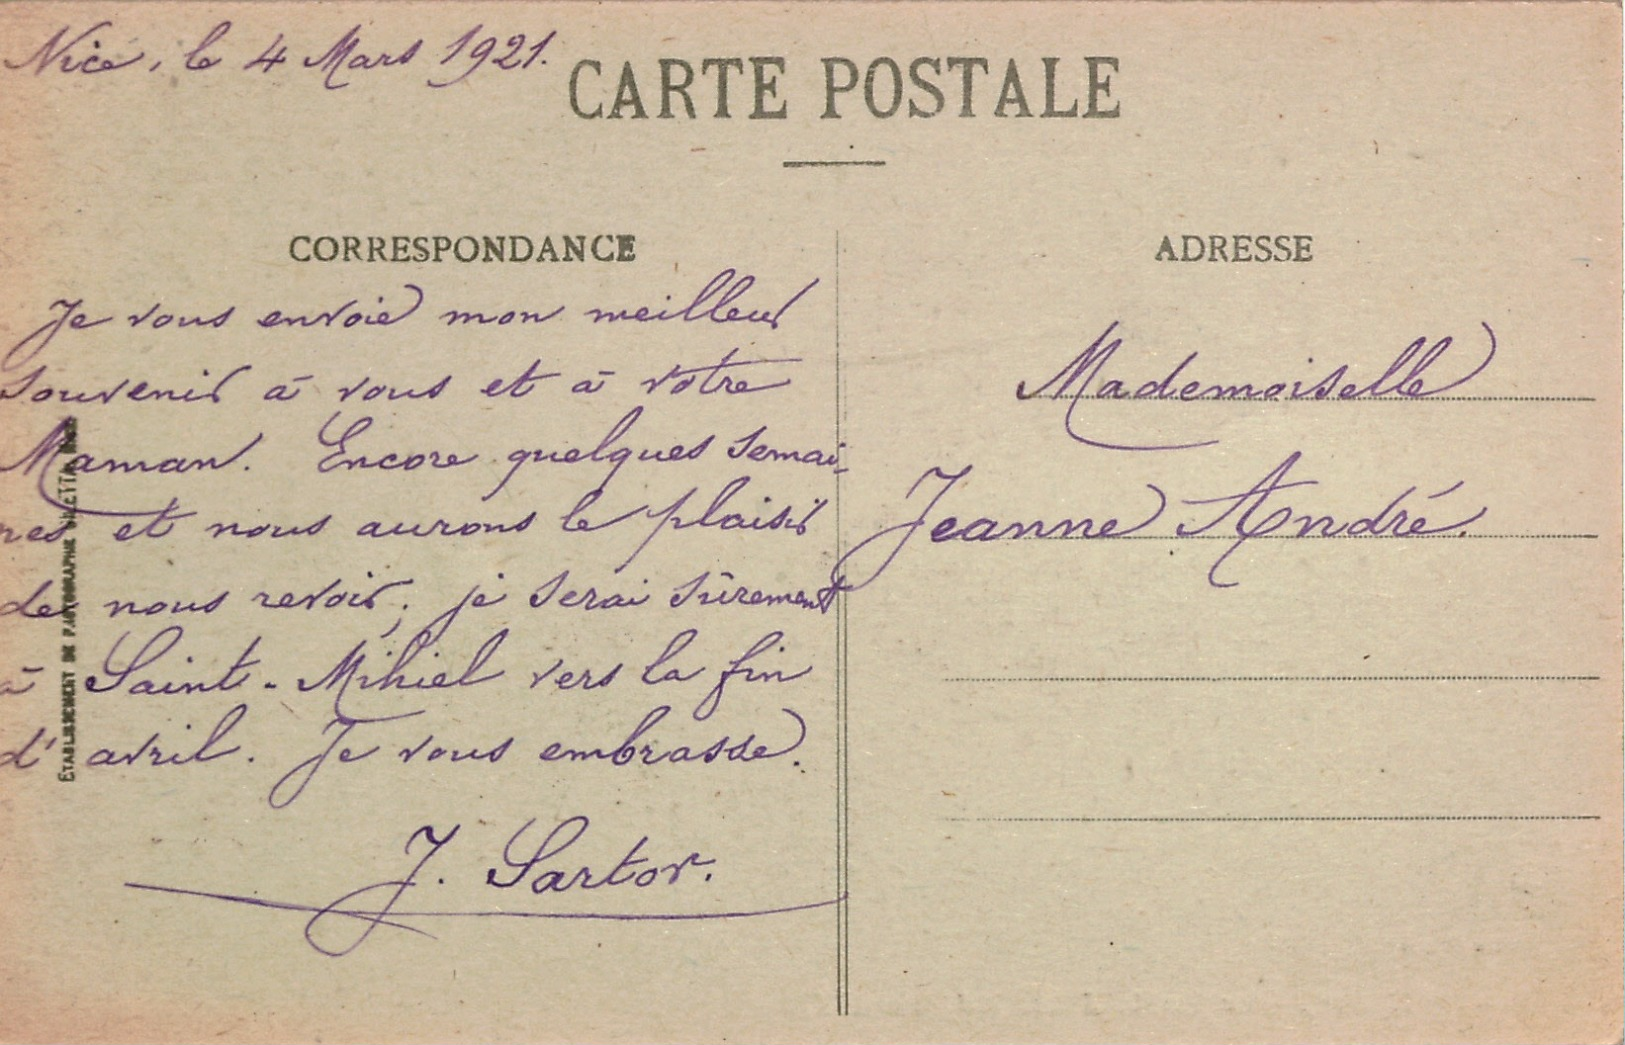 Nice, le 4 Mars 1921.
CARTE POSTALE
CORRESPONDANCE
Je vous envoie mon meilleur
souvenir à vous et à votre
Maman. Encore quelques semai-
nes et nous aurons le plaisir
de nous revoir; je serai sûrement
à Saint-Mihiel vers la fin
d'avril. Je vous embrasse.
J. Sartor.
ADRESSE
Mademoiselle
Jeanne André.
ETABLISSEMENT DE PHOTOGRAPHIE GILETTA